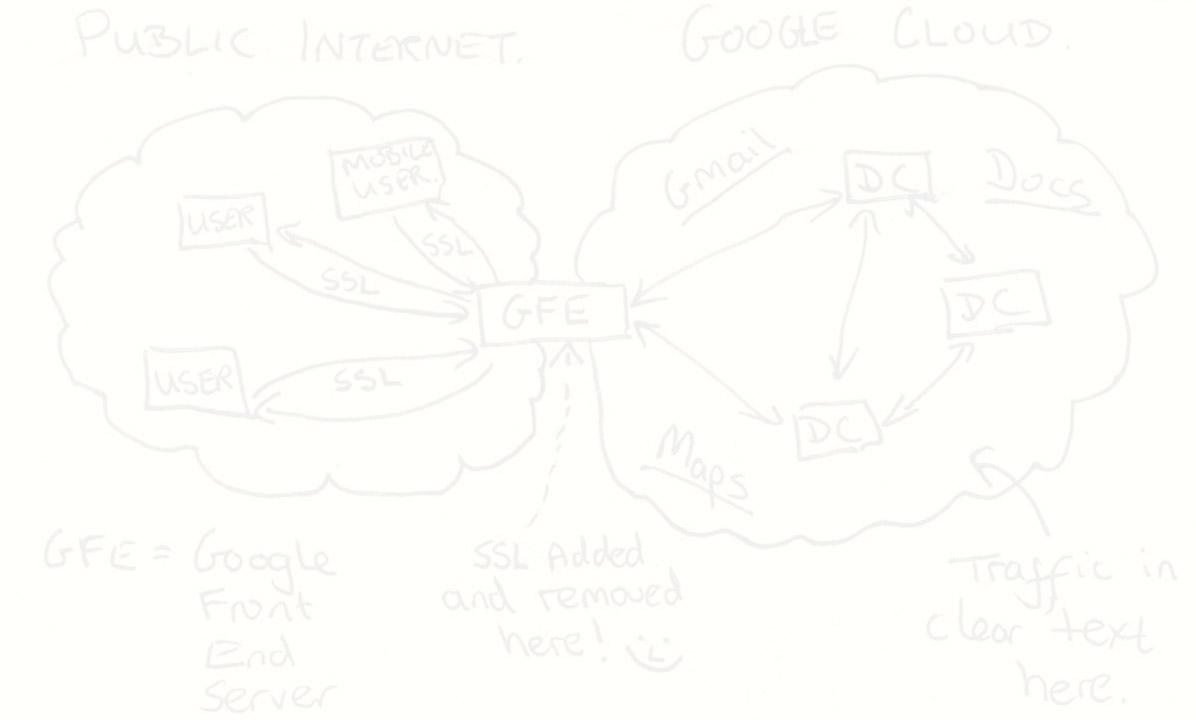 PUBLIC INTERNET.
GOOGLE CLOUD.
MOBILE
USER.
Gmail
DC
Docs
USER
SSL
SSL
GFE
DC
USER
SSL
DC
Maps
GFE = Google
Front
End
Server
SSL Added
and removed
here!
Traffic in
clear text
here.